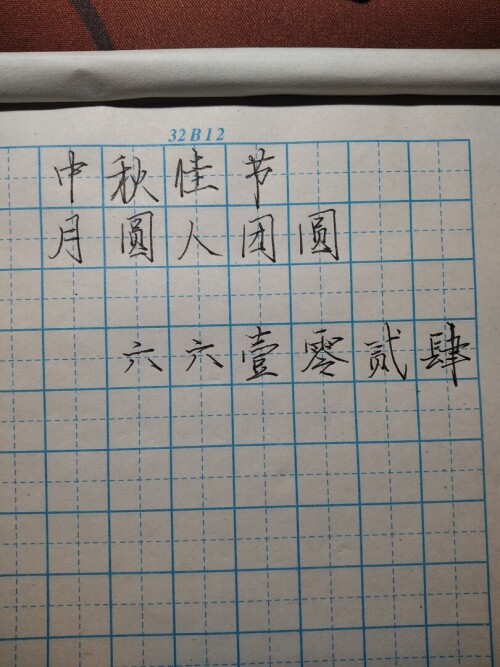 32B12
中秋佳节
月圆人团圆
六六壹零贰肆